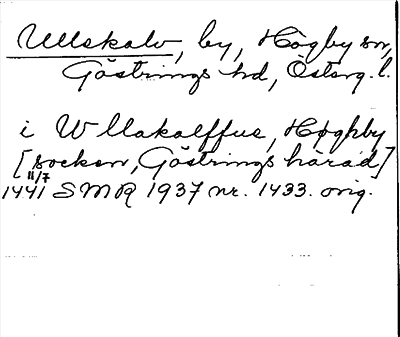 Ullskalv, by, Högby sn,
Göstrings hd, Österg. l.
i Wllakalffue, Høghby
[socken, Göstrings härad]
11/7
1441 SMR 1937 nr. 1433. orig.